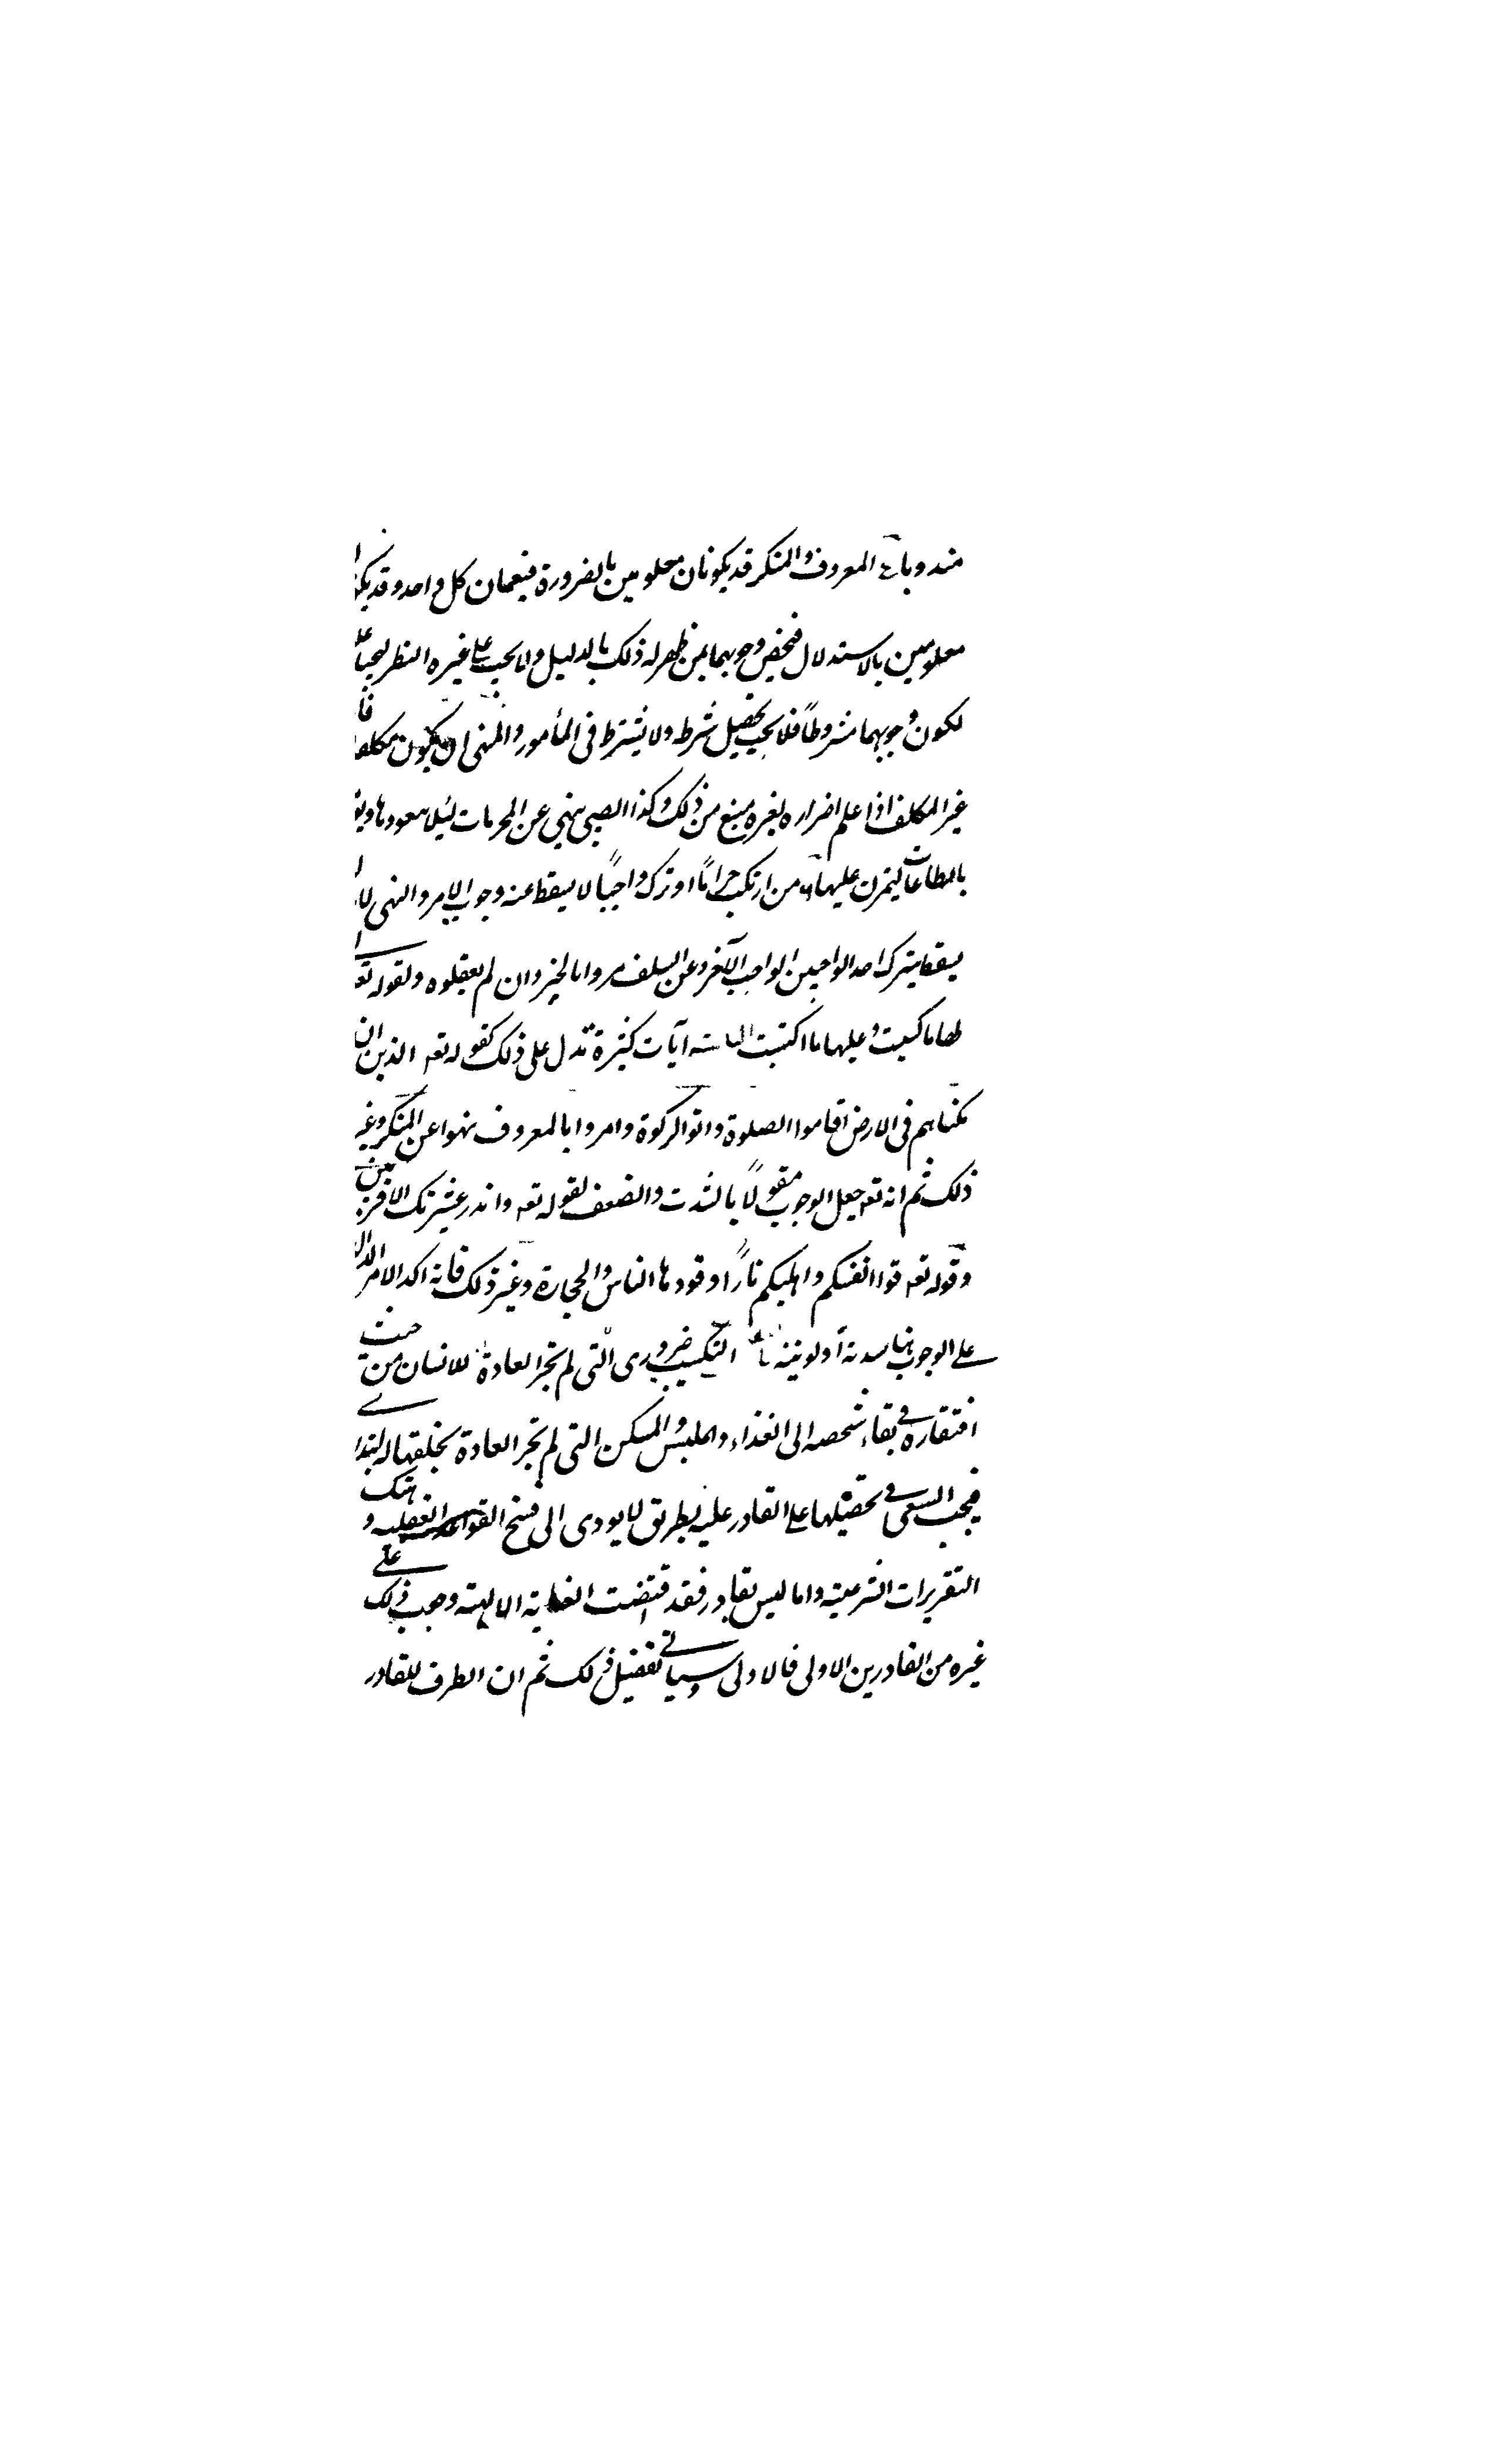 مندوبا ح المعروف والمنكر قد يكونان معلومين بالضرورة فيعمان كل واحد وقد يكو
معلومين بالاستدلال فيختص وجوبهما بمن ظهر له ذلك بالدليل ولا يجب على غيره النظر ليجبا عل
لكون وجوبهما مشروطاً فلا يجب تحصيل شرطه ولا يشترط فى المأمور والمنهى ان يكون مكلفا فا
غير المكلف اذا علم اضراره لغيره منع من ذلك وكذا الصبى ينهى عن المحرمات لئلا يتعودها ويؤ
بالطاعات ليتمرن عليها من ارتكب حراماً او ترك واجباً لا يسقط عنه وجوب الامر والنهى لا
يسقط بترك احد الواجبين الواجب الآخر وعن السلف مروا بالخير وان لم تفعلوه ولقوله تع
لها ما كسبت وعليها ما اكتسبت آيات كثيرة تدل على ذلك كقوله تعه الذين ان
مكناهم فى الارض اقاموا الصلوة واتوا الزكوة وامروا بالمعروف نهوا عن المنكر وغير
ذلك ثم انه تعه جعل الوجوب مقولاً بالشدت والضعف لقوله تعه واندر عشيرتك الاقربين
وقوله تعه قوا انفسكم واهليكم ناراً وقودها الناس والحجارة وغير ذلك فانه اكد الامر الدال
على الوجوب التكسب ضرورى التى لم تجر العادة للانسان من حيث
افتقاره فى بقاء شخصه الى الغذاء والملبس والمسكن التى لم تجر العادة بخلقها له ابتدا
فيجب السعى فى تحصيلها على القادر عليه بطريق لا يودى الى فسخ القواعد العقلية و هتك
التقريرات الشرعية واما ليس بقادر فقد اقتضت العناية الالهية وجب ذلك على
غيره من القادرين الاولى فالاولى وسياتى تفضيل ذلك ثم ان الطرف للقادر